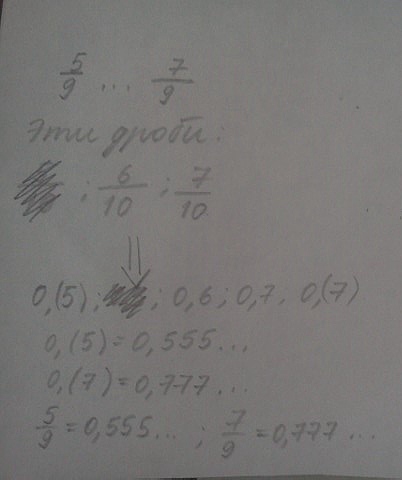 5/9 ... 7/9
Эти дроби:
; 6/10 ; 7/10
0,(5); ; 0,6; 0,7. 0,(7)
0,(5)=0,555...
0,(7)=0,777...
5/9=0,555... ; 7/9=0,777...